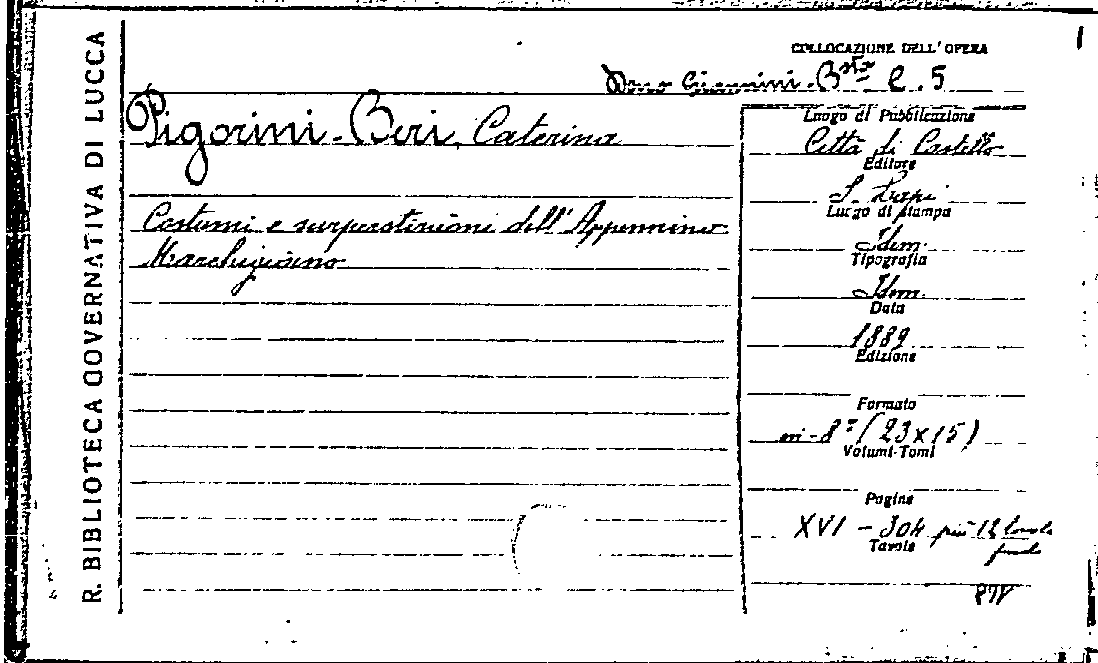 R. BIBLIOTECA GOVERNATIVA DI LUCCA
COLLOCAZIONE DELL' OPERA
Dono Giannini - Bsta C. 5
Pigorini-Beri, Caterina
Costumi e surperstizioni dell' Appennino
Marchigiano
Luogo di Pubblicazione
Città di Castello
Editore
S. Lapi
Luogo di stampa
Idem.
Tipografia
Idem.
Data
1889
Edizione
Formato
in-8° (23x15)
Volumi-Tomi
Pagine
XVI - 304 più 12 tavole
Tavole